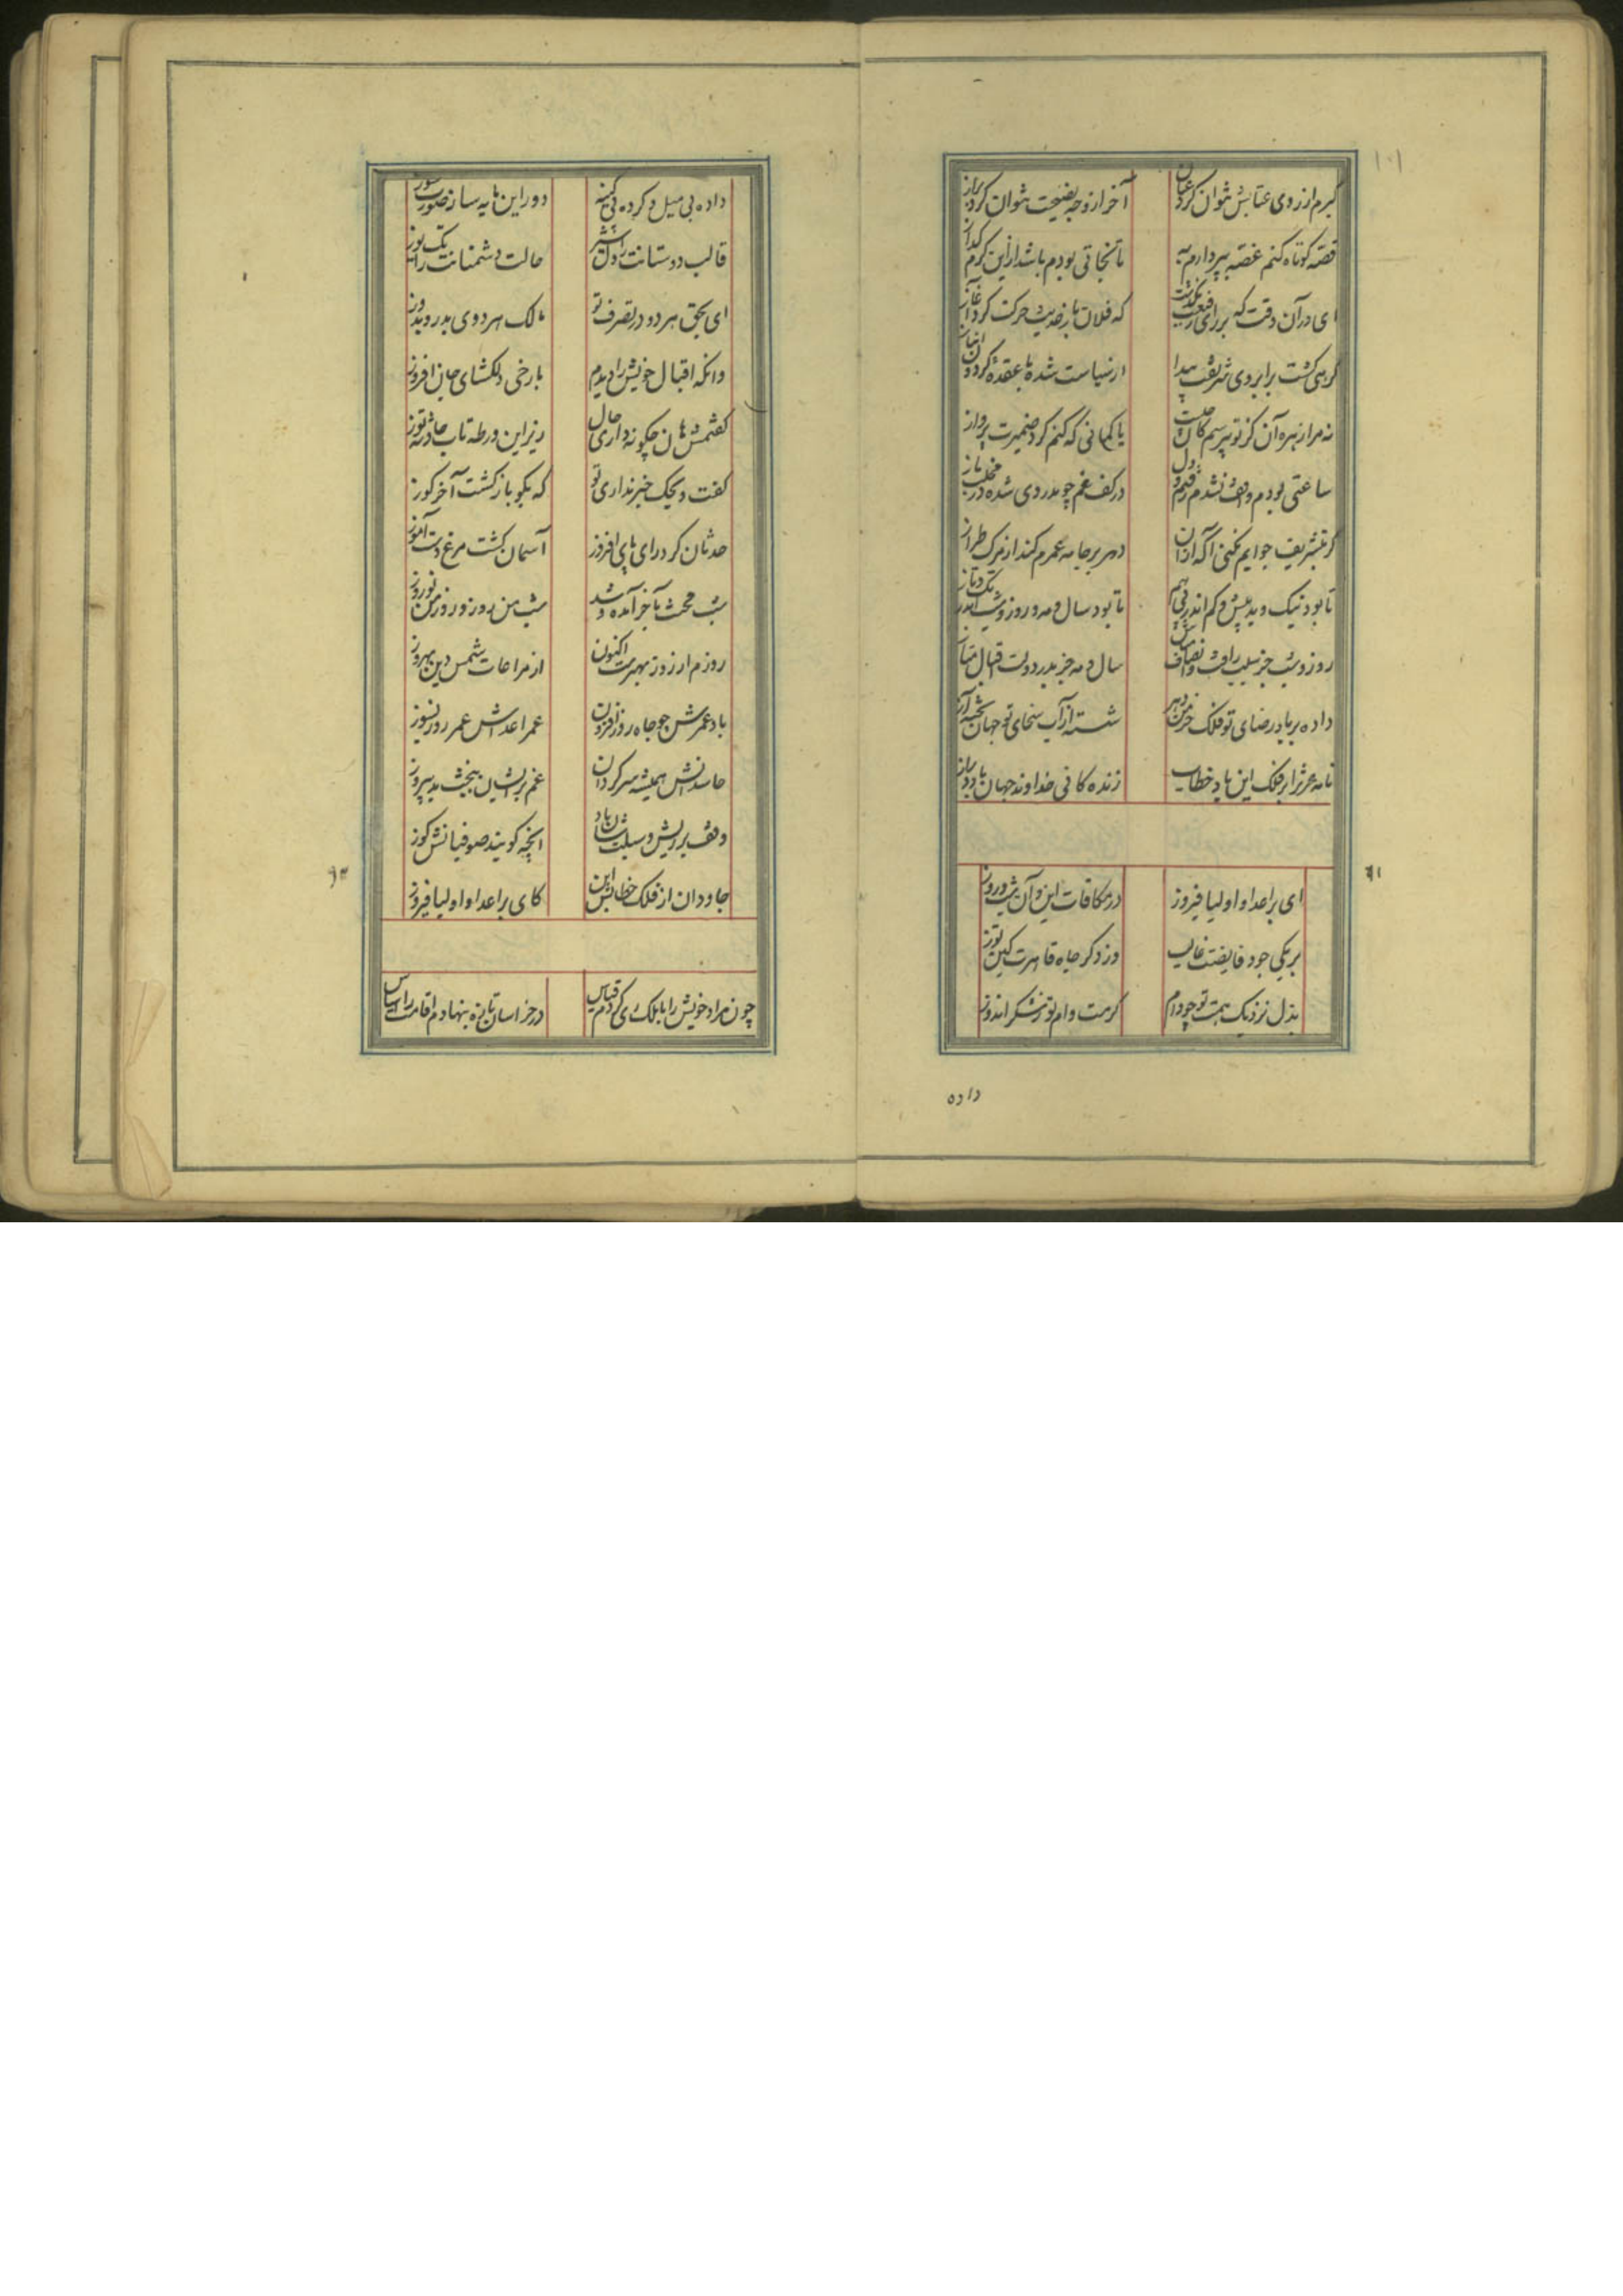 ۱۰۱
گیرم از روی عتابش نتوان کرد عیان
آخر از وجه نصیحت بتوان کرد براز
قصه کوتاه کنم غصه بپردازم به
تا نجاتی بودم باشد ازین کرم گداز
ای در آن وقت که بر رای رفیعت بگذشت
که فلان باز حدیث حرکت کرد آغاز
گرهی گشت بر ابروی شریفت پیدا
از سیاست شده با عقده گردون انباز
نه مرا زهره آن کز تو بپرسم کان چیست
یا گمانی که کنم گرد ضمیرت پرواز
ساعتی بودم و واقف نشدم رفتم و دل
در کف غم چو تذروی شده در مخلب باز
گر بتشریف جوابم نکنی آگه از آن
دهر بر جامه عمرم کند از مرگ طراز
تا بود نیک و بد و بیش و کم اندر پی هم
تا بود سال و مه و روز و شب اندر تک و تاز
روز و شب جز سبب رافت و انصاف مباش
سال و مه جز بدر دولت و اقبال متاز
داده بر باد رضای تو فلک خرمن دهر
شسته از آب سخای تو جهان تخته آز
نامه عمر ترا بر فلک این باد خطاب
زندگانی خداوند جهان باد دراز
۹۱
ای بر اعدا و اولیا فیروز
در مکافات این و آن شب و روز
بر یکی جود فایضت غالب
وز دگر جاه قاهرت کین توز
بذل نزدیک همت تو چو وام
کرمت وام توز شکر اندوز
داده
داده بی میل و کرده بی کینه
دور این مایه ساز صورت سوز
قالب دوستانت را دل شیر
حالت دشمنانت را تک یوز
ای بحق هر دو در تصرف تو
مالک هر دوی بدر و بدوز
وانکه اقبال خویش را دیدم
با رخی دلکشای جان افروز
گفتمش هان چگونه داری حال
زیر این ورطه تاب حادثه توز
گفت ویحک خبر نداری تو
که نکو باز گشت آخر گوز
حدثان کرد رای پای افزوز
آسمان گشت مرغ دست آموز
شب محنت بآخر آمد و شد
شب من روز و روز من نوروز
روزم از روز بهترست اکنون
از مراعات شمس دین بهروز
باد عمرش چو جاه روزافزون
عمر اعداش عمر روز سپوز
حاسدانش همیشه سرگردان
غم بر ایشان ببخت بد پیروز
وقف بر ریش و سبلت شان باد
آنچه گویند صوفیانش گوز
جاودان از فلک خطابش این
کای بر اعدا و اولیا فیروز
۹۲
چون مراد خویش را با ملک ری کردم قیاس
در خراسان تازه بنهادم اقامت را اساس